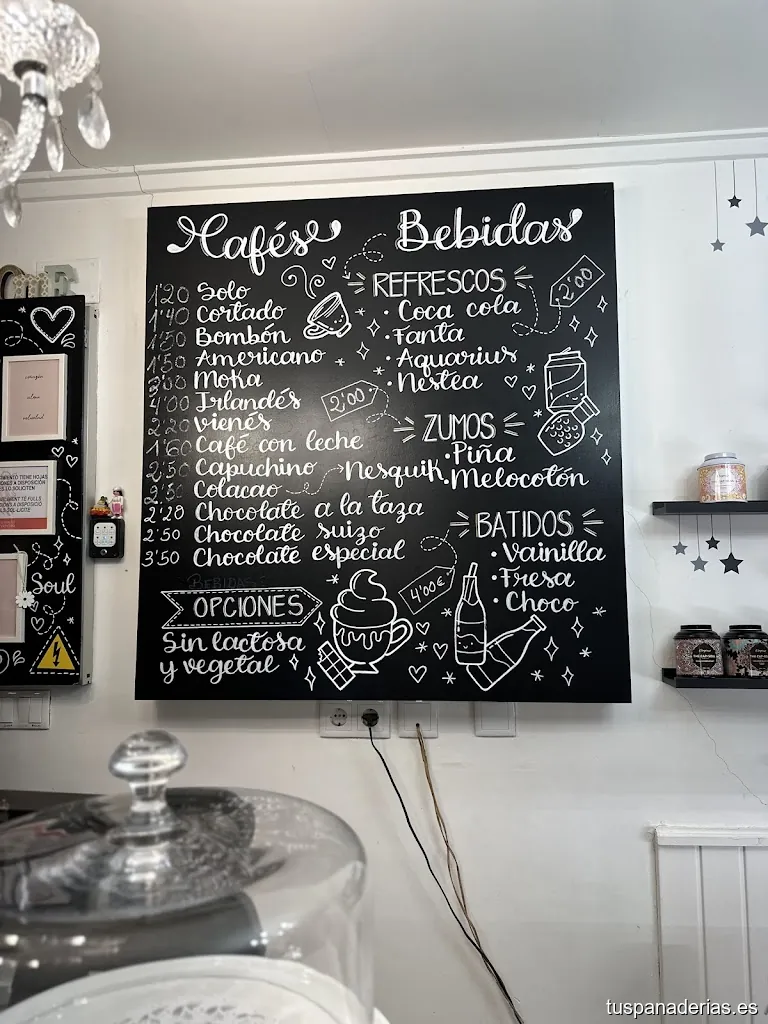 Cafés
1'20 Solo
1'40 Cortado
1'50 Bombón
1'50 Americano
Moka
4'00 Irlandés
2'20 vienés
1'60 Café con leche
2'50 Capuchino
Colacao
Nesquik
2'20 Chocolate a la taza
2'50 Chocolate suizo
3'50 Chocolate especial
BEBIDAS
OPCIONES
Sin lactosa
y vegetal
Bebidas
REFRESCOS
2'00
· Coca cola
· Fanta
· Aquarius
· Nestea
2'00
ZUMOS
· Piña
· Melocotón
BATIDOS
4'00€
· Vainilla
· Fresa
· Choco
Soul
tuspanaderias.es